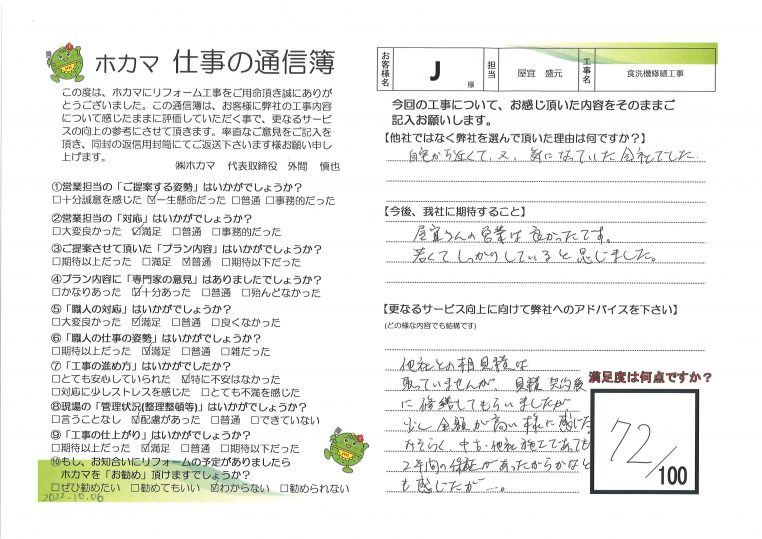 ホカマ 仕事の通信簿
この度は、ホカマにリフォーム工事をご用命頂き誠にありが
とうございました。この通信簿は、お客様に弊社の工事内容
について感じたままに評価していただく事で、更なるサービ
スの向上の参考にさせて頂きます。率直なご意見をご記入を
頂き、同封の返信用封筒にてご返送下さいます様お願い申し
上げます。
㈱ホカマ 代表取締役 外間 慎也
①営業担当の「ご提案する姿勢」はいかがでしょうか?
□十分誠意を感じた ☑一生懸命だった □普通 □事務的だった
②営業担当の「対応」はいかがでしょうか?
□大変良かった ☑満足 □普通 □事務的だった
③ご提案させて頂いた「プラン内容」はいかがでしょうか?
□期待以上だった □満足 ☑普通 □期待以下だった
④プラン内容に「専門家の意見」はありましたでしょうか?
□かなりあった ☑十分あった □普通 □殆んどなかった
⑤「職人の対応」はいかがでしょうか?
□大変良かった ☑満足 □普通 □良くなかった
⑥「職人の仕事の姿勢」はいかがでしょうか?
□期待以上だった ☑満足 □普通 □雑だった
⑦「工事の進め方」はいかがでしたか?
□とても安心していられた ☑特に不安はなかった
□対応に少しストレスを感じた □とても不満を感じた
⑧現場の「管理状況(整理整頓等)」はいかがでしょうか?
□言うことなし ☑配慮があった □普通 □できていない
⑨「工事の仕上がり」はいかがでしょうか?
□期待以上だった ☑満足 □普通 □期待以下だった
⑩もし、お知合いにリフォームの予定がありましたら
ホカマを「お勧め」頂けますでしょうか?
□ぜひ勧めたい □勧めてもいい ☑わからない □勧められない
2022.10.06
お客様名 J 様 担当 屋宜 盛元 工事名 食洗機修繕工事
今回の工事について、お感じ頂いた内容をそのままご
記入お願いします。
【他社ではなく弊社を選んで頂いた理由は何ですか?】
自宅から近くて、又、気になっていた会社でした。
【今後、我社に期待すること】
屋宜さんの営業は良かったです。
若くてしっかりしていると感じました。
【更なるサービス向上に向けて弊社へのアドバイスを下さい】
(どの様な内容でも結構です)
他社との相見積は
取っていませんが 見積 契約後
に修繕してもらいましたが
少し金額が高い様に感じた
おそらく 中古・他社 であっても
2年間の保証があったからかなと
も感じたが…。
満足度は何点ですか?
72/100